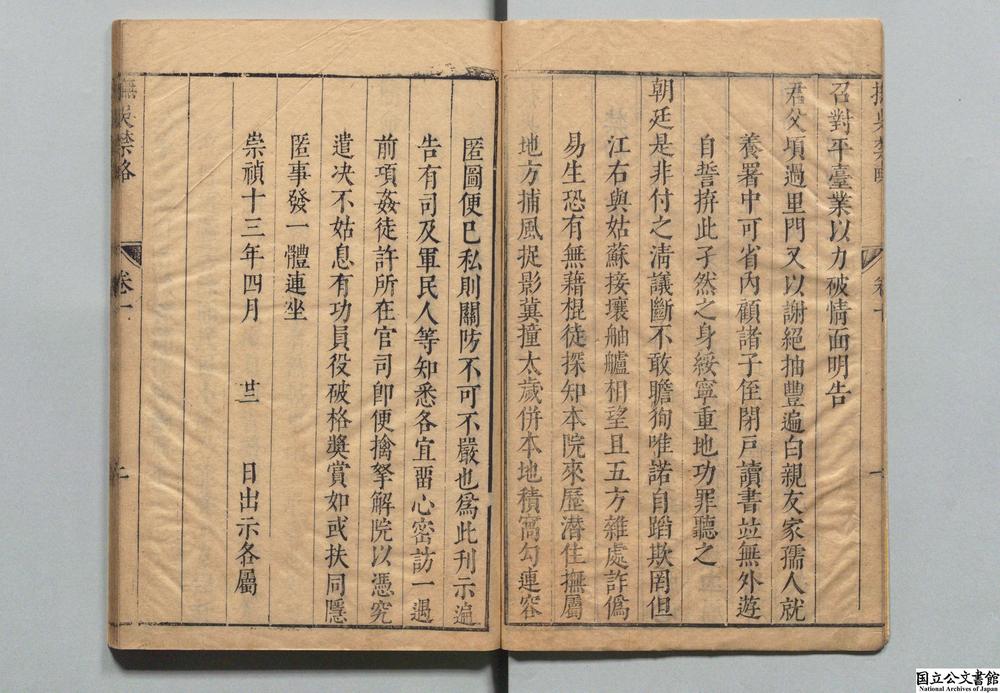 召對平臺業以力破情面明告
君父項過里門又以謝絕抽豐遍白親友家孺人就
養署中可省內顧諸子侄閉戸讀書並無外遊
自誓拚此孑然之身綏寧重地功罪聽之
朝廷是非付之淸議斷不敢瞻徇唯諾自蹈欺罔但
江右與姑蘇接壤舳艫相望且五方雜處詐僞
易生恐有無藉棍徒探知本院來歷潛住撫屬
地方捕風捉影冀撞太歲併本地積窩勾連容
匿圖便已私則關防不可不嚴也爲此刊示遍
告有司及軍民人等知悉各宜畱心密訪一遇
前項姦徒許所在官司卽便擒拏解院以憑究
遣决不姑息有功員役破格奬賞如或扶同隱
匿事發一體連坐
崇禎十三年四月 廿三 日出示各屬
撫吳禁略
卷一
二
国立公文書館
National Archives of Japan